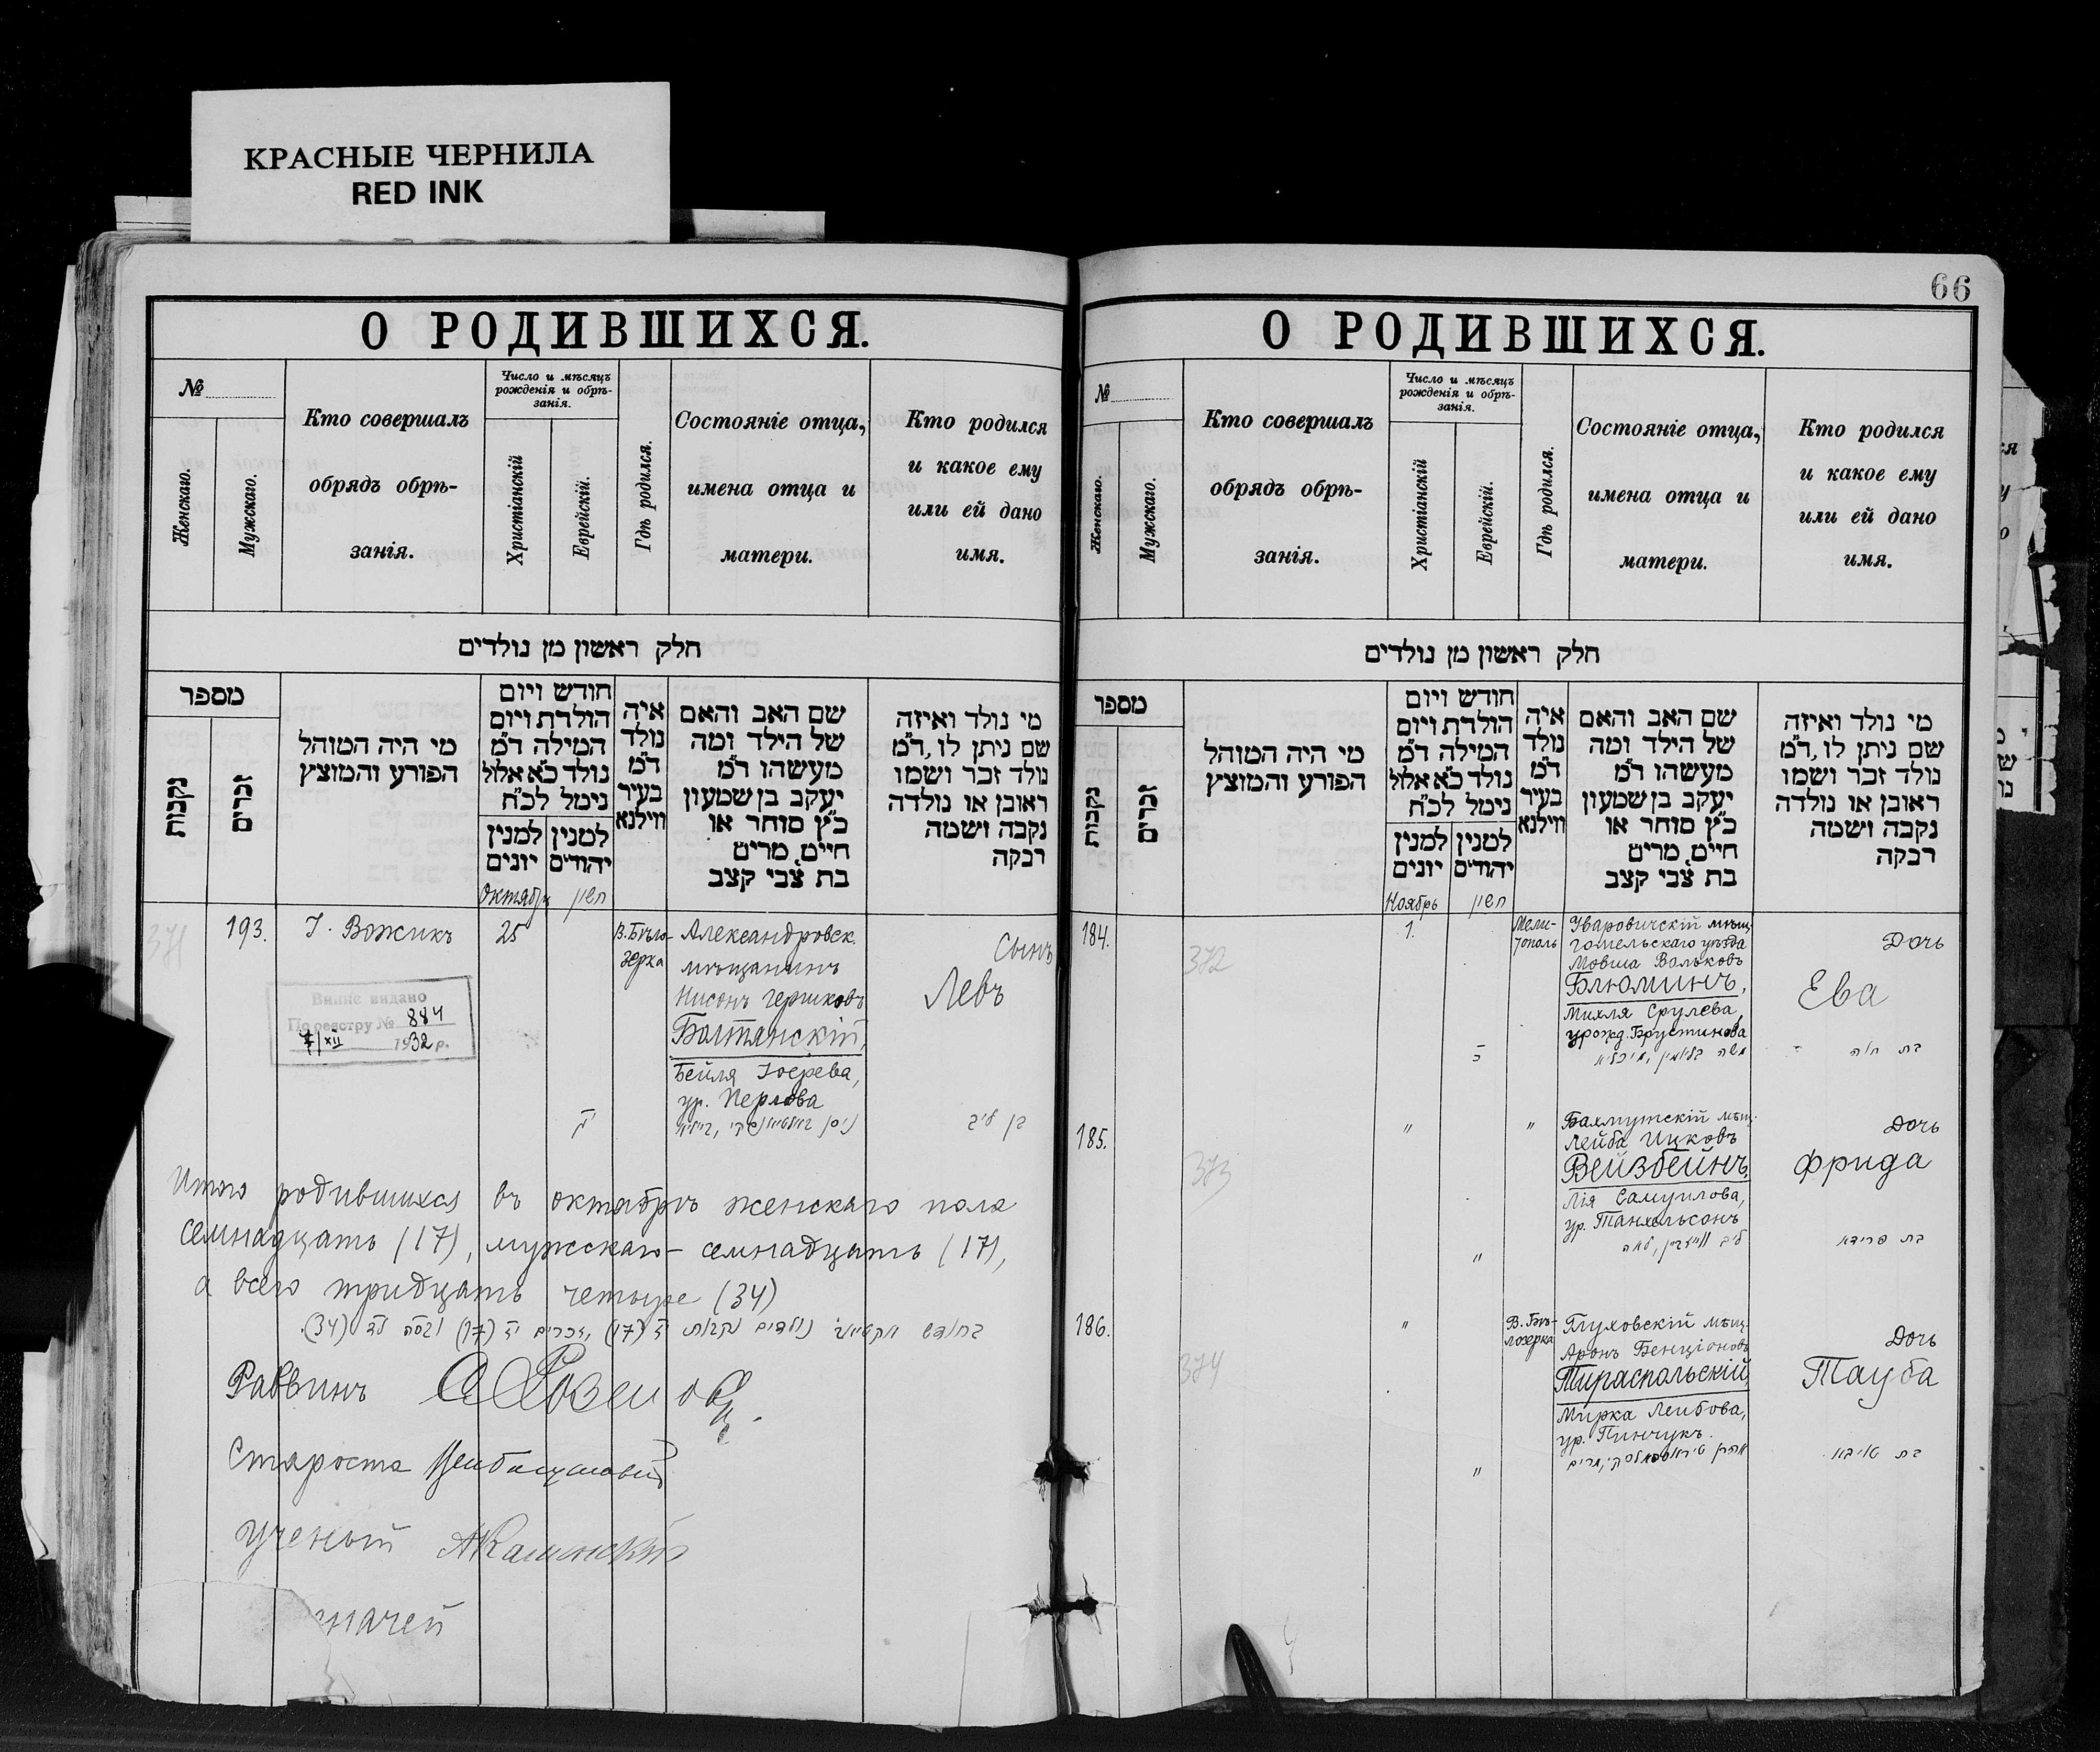 КРАСНЫЕ ЧЕРНИЛА
RED INK
О РОДИВШИХСЯ.
№
Женскаго.
Мужскаго.
Кто совершалъ
обрядъ обрѣ-
занія.
Число и мѣсяцъ
рожденія и обрѣ-
занія.
Христіанскій
Еврейскій.
Гдѣ родился.
Состояніе отца,
имена отца и
матери.
Кто родился
и какое ему
или ей дано
имя.
חלק ראשון מן נולדים
מספר
נקבות
זכרים
מי היה המוהל
הפורע והמוצץ
חודש ויום
הולדת ויום
המילה ד״מ
נולד כ״א אלול
נימל לכ״ח
למנין
יונים
למנין
יהודים
איה
נולד
ד״מ
בעיר
ווילנא
שם האב והאם
של הילד ומה
מעשהו ד״מ
יעקב בן שמעון
כ״ץ סוחר או
חיים, מרים
בת צבי קצב
מי נולד ואיזה
שם ניתן לו, ד״מ
נולד זכר ושמו
ראובן או נולדה
נקבה ושמה
רבקה
Октябрь
חשון
371
193.
I. Вожикъ
25
В. Бѣло-
зерка
Александровск.
мѣщанинъ
Нисонъ Гершковъ
Болтянскій,
Бейля
ур. Перлова
Сынъ
Левъ
בן ליב
Випис видано
По реєстру № 884
7/XII 1932 р.
Итого родившихся въ октябрѣ женскаго пола
семнадцать (17), мужскаго - семнадцать (17),
а всего тридцать четыре (34)
בחודש נולדים נקבות יז (17) זכרים יז (17) לד (34).
Раввинъ
Староста
Ученый
начей
66
О РОДИВШИХСЯ.
№
Женскаго.
Мужскаго.
Кто совершалъ
обрядъ обрѣ-
занія.
Число и мѣсяцъ
рожденія и обрѣ-
занія.
Христіанскій
Еврейскій.
Гдѣ родился.
Состояніе отца,
имена отца и
матери.
Кто родился
и какое ему
или ей дано
имя.
חלק ראשון מן נולדים
מספר
נקבות
זכרים
מי היה המוהל
הפורע והמוצץ
חודש ויום
הולדת ויום
המילה ד״מ
נולד כ״א אלול
נימל לכ״ח
למנין
יונים
למנין
יהודים
איה
נולד
ד״מ
בעיר
ווילנא
שם האב והאם
של הילד ומה
מעשהו ד״מ
יעקב בן שמעון
כ״ץ סוחר או
חיים, מרים
בת צבי קצב
מי נולד ואיזה
שם ניתן לו, ד״מ
נולד זכר ושמו
ראובן או נולדה
נקבה ושמה
רבקה
Ноябрь
חשון
184.
372
1.
Мели-
тополь
Уваровичскій мѣщ.
гомельскаго уѣзда
Мовша Вольковъ
Блюминъ,
Михля Срулева,
урожд. Брустинова
משה בלומין, מיכליא
Дочь
Ева
בת חוה
185.
373
"
"
"
Бахмутскій мѣщ.
Лейба Ицковъ
Вейзбейнъ,
Лія Самуилова,
ур. Танхельсонъ
Дочь
Фрида
בת פרידא
186.
374
"
"
В. Бѣ-
лозерка
Глуховскій мѣщ.
Аронъ Бенціоновъ
Тираспольскій,
Мирка Лейбова,
ур. Пинчукъ.
אהרן טיראספאלסקי, מרים
Дочь
Тауба
בת טויבא